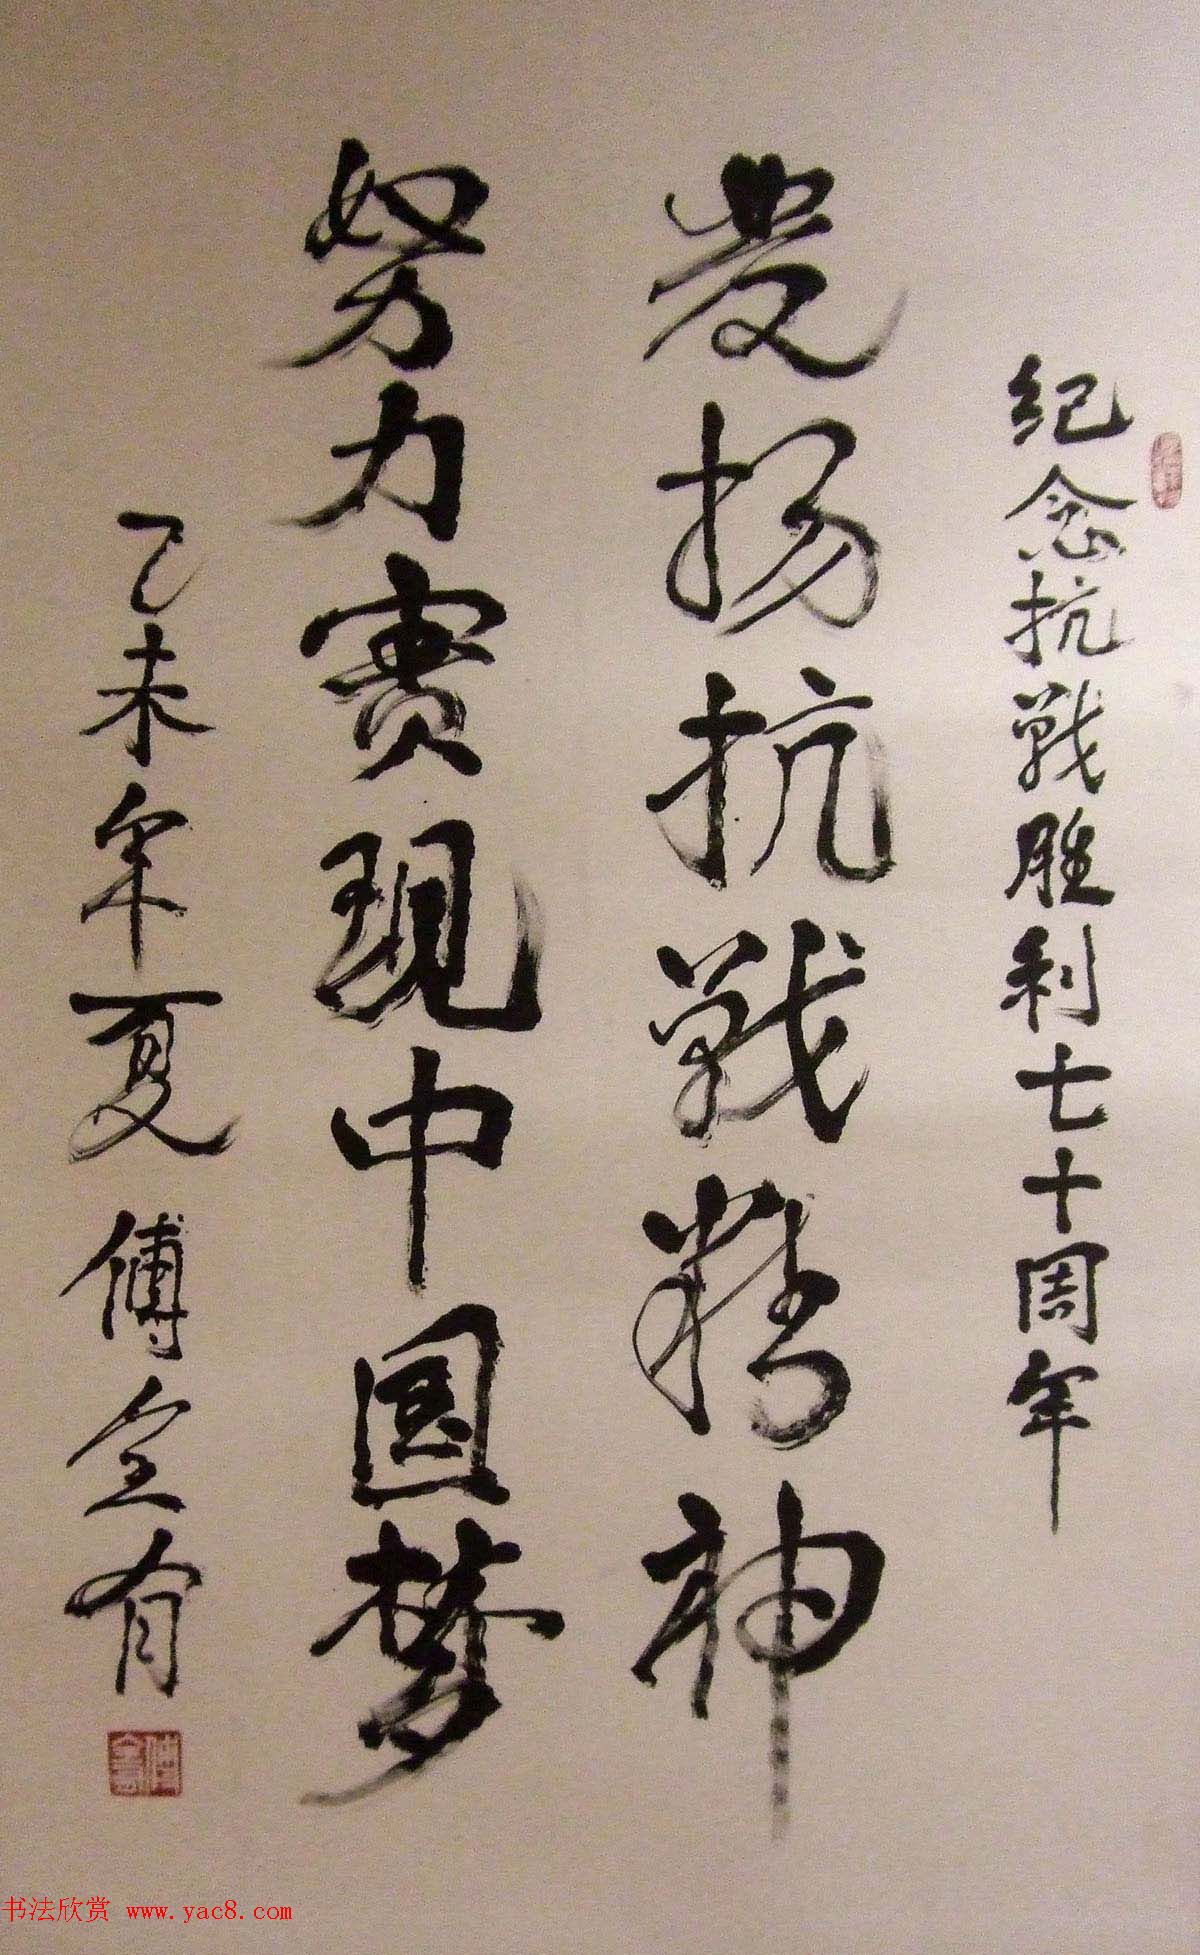 纪念抗战胜利七十周年
发扬抗战精神
努力實现中国梦
乙未年夏 傅全有
书法欣赏 www.yac8.com